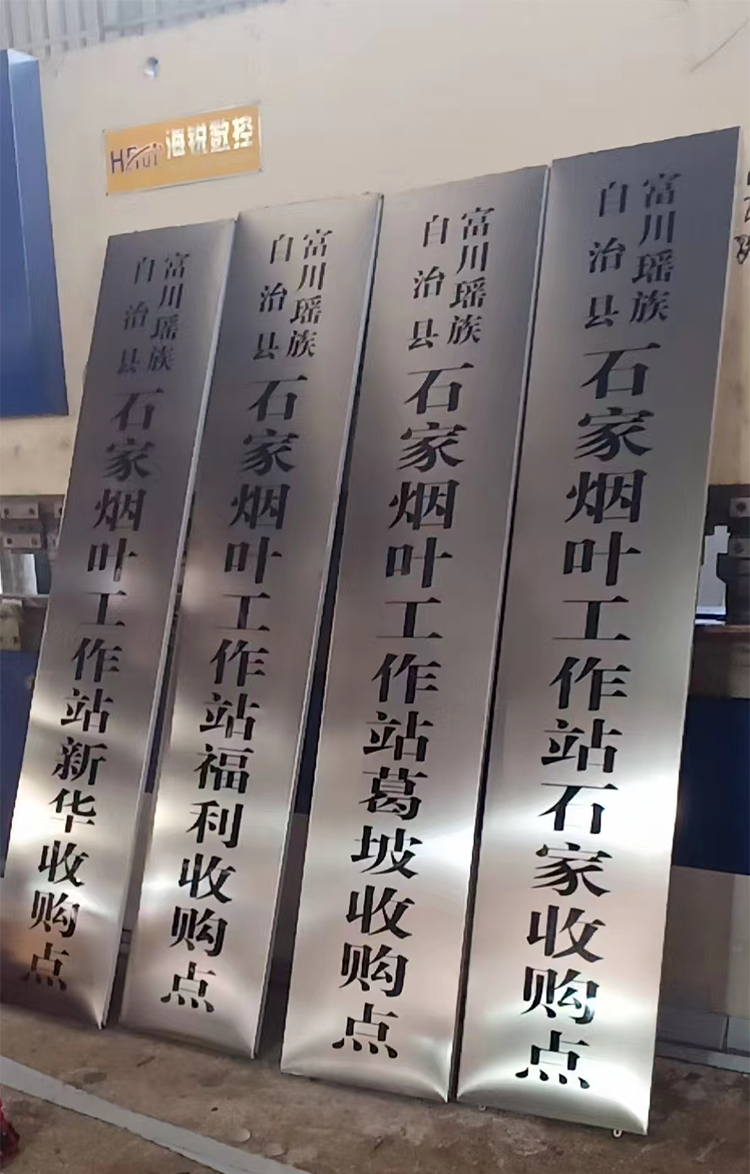 HRui 海锐数控
富川瑶族
自治县
石家烟叶工作站新华收购点
富川瑶族
自治县
石家烟叶工作站福利收购点
富川瑶族
自治县
石家烟叶工作站葛坡收购点
富川瑶族
自治县
石家烟叶工作站石家收购点